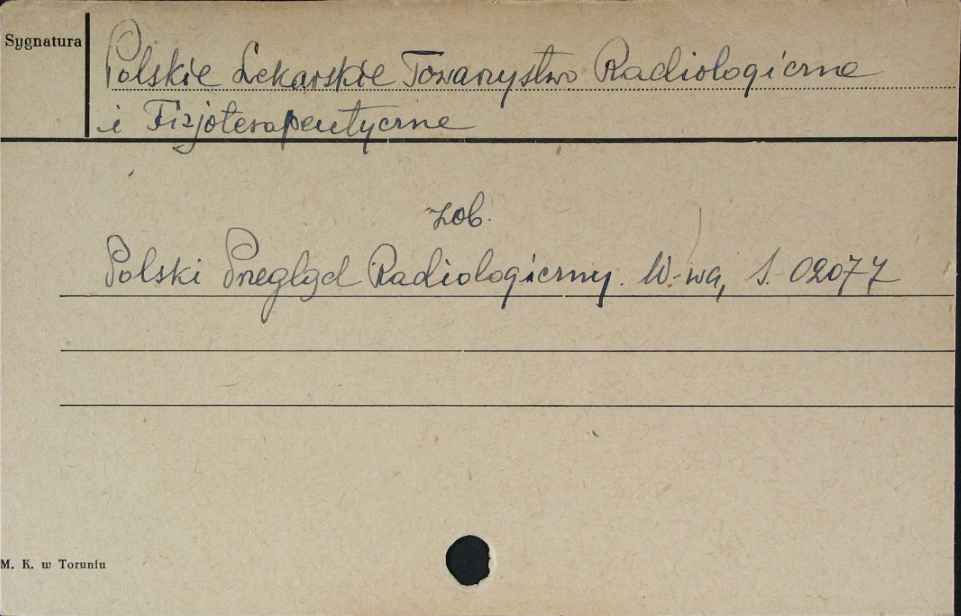 Sygnatura
Polskie Lekarskie Towarzystwo Radiologiczne
i Fizjoterapeutyczne
zob.
Polski Przegląd Radiologiczny. W-wa, S. 02077
M. K. w Toruniu